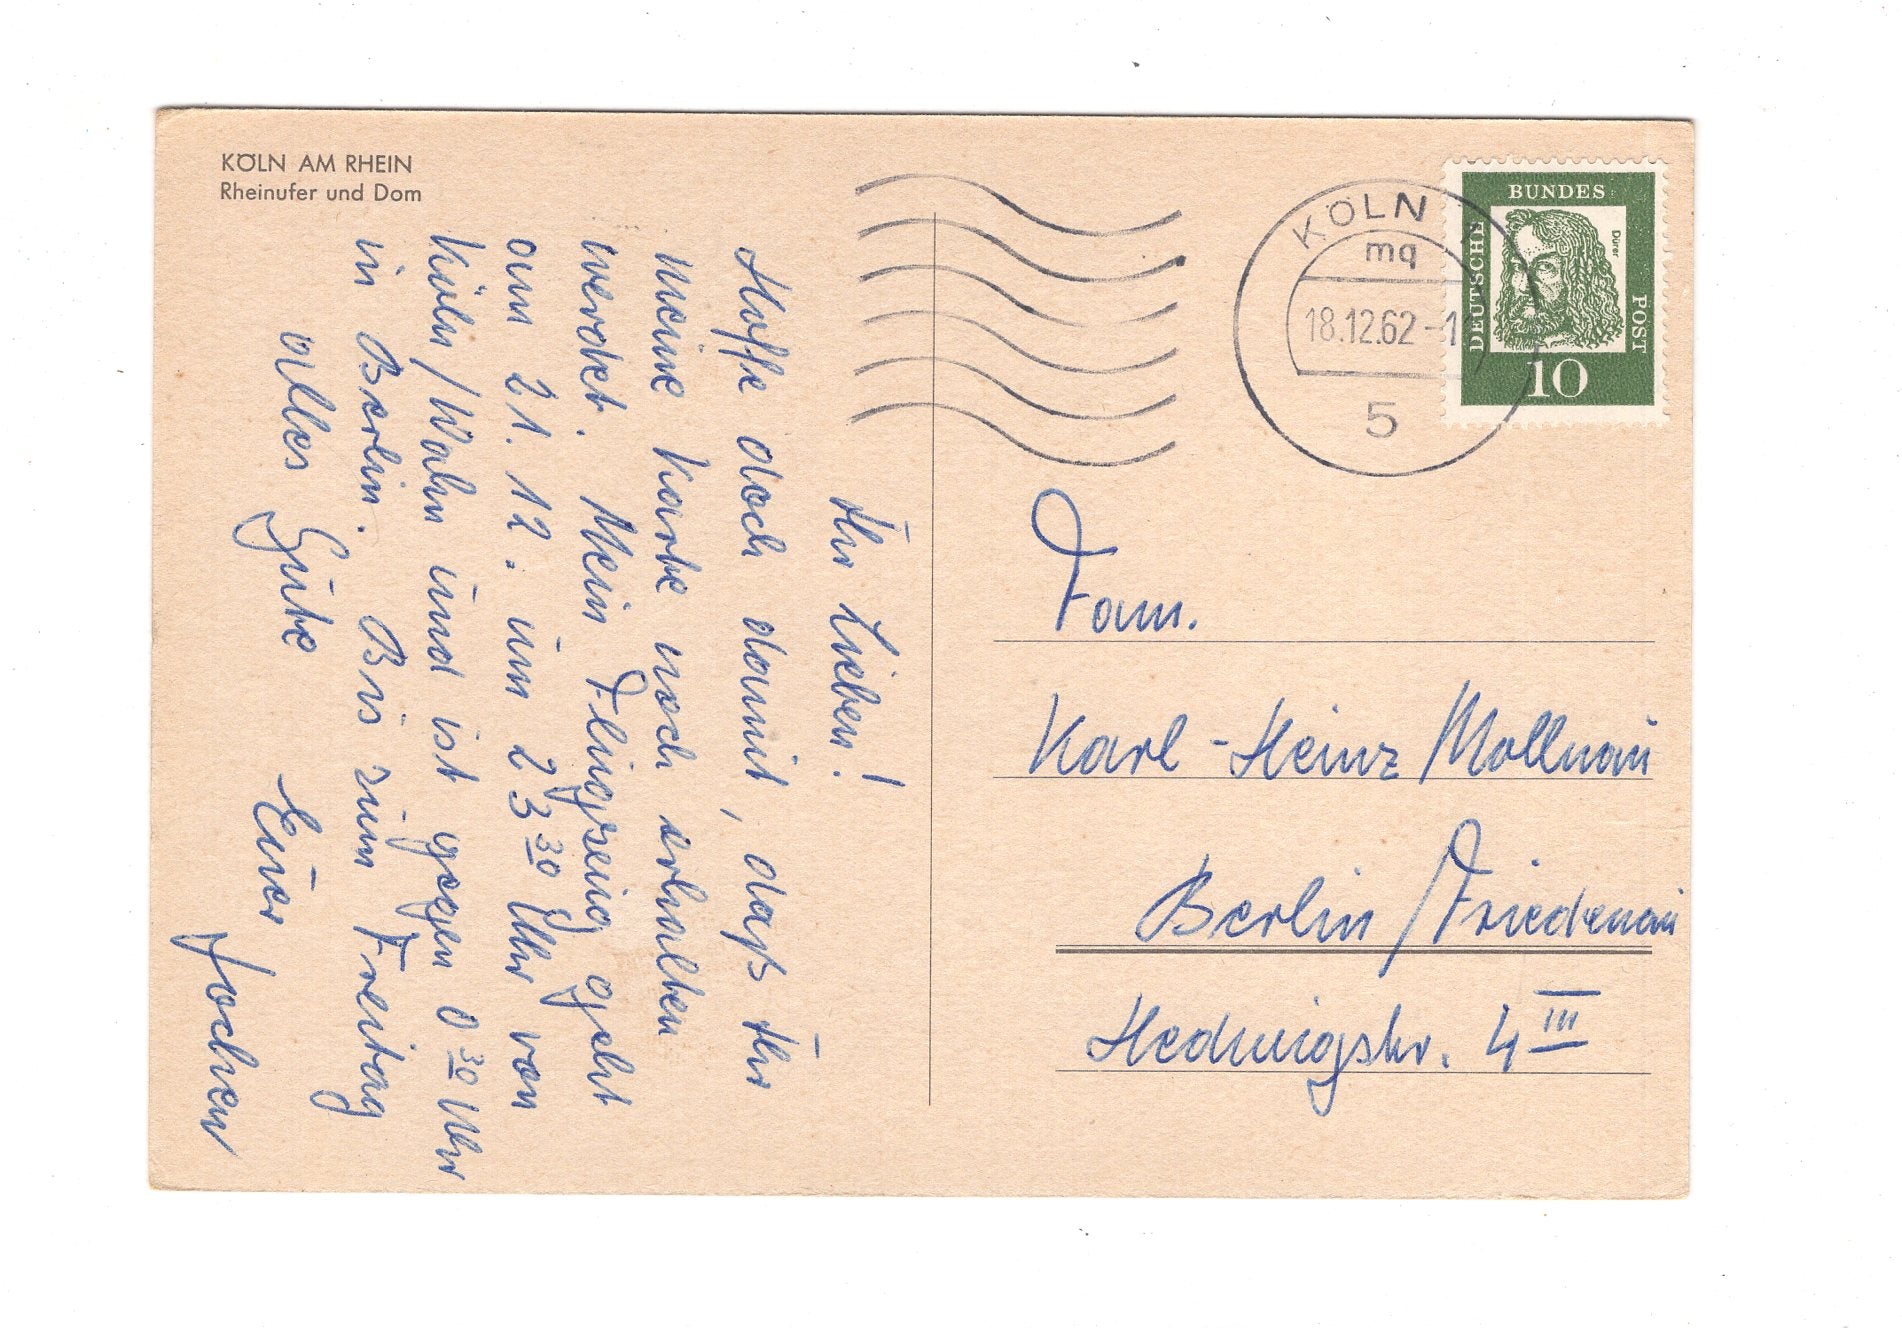 KÖLN AM RHEIN
Rheinufer und Dom
Ihr Lieben!
Hoffe doch damit, daß Ihr
meine Karte noch erhalten
werdet. Mein Flugzeug geht
am 21. 12. um 23 30 Uhr von
Köln/Wahn und ist gegen 0 30 Uhr
in Berlin. Bis zum Freitag
alles Gute Euer
Jochen
KÖLN
mq
18.12.62-1
5
BUNDES
DEUTSCHE
POST
Dürer
10
Fam.
Karl-Heinz Mollnau
Berlin/Friedenau
Hedwigstr. 4 III